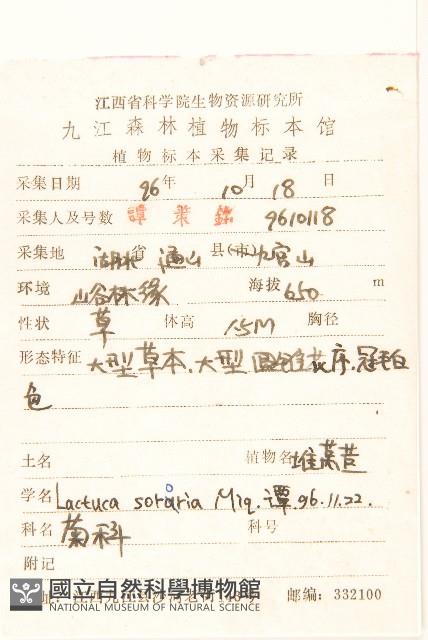 江西省科学院生物资源研究所
九江森林植物标本馆
植物标本采集记录
采集日期 96年 10月 18日
采集人及号数 譚策銘 9610118
采集地 湖北省 通山县(市)九宫山
环境 山谷林缘 海拔 650 m
性状 草 体高 1.5M 胸径
形态特征 大型草本.大型圆锥花序.冠毛白
色
土名 植物名 堆莴苣
学名 Lactuca sororia Miq. 谭 96.11.22.
科名 菊科 科号
附记
國立自然科學博物館
NATIONAL MUSEUM OF NATURAL SCIENCE
邮编: 332100